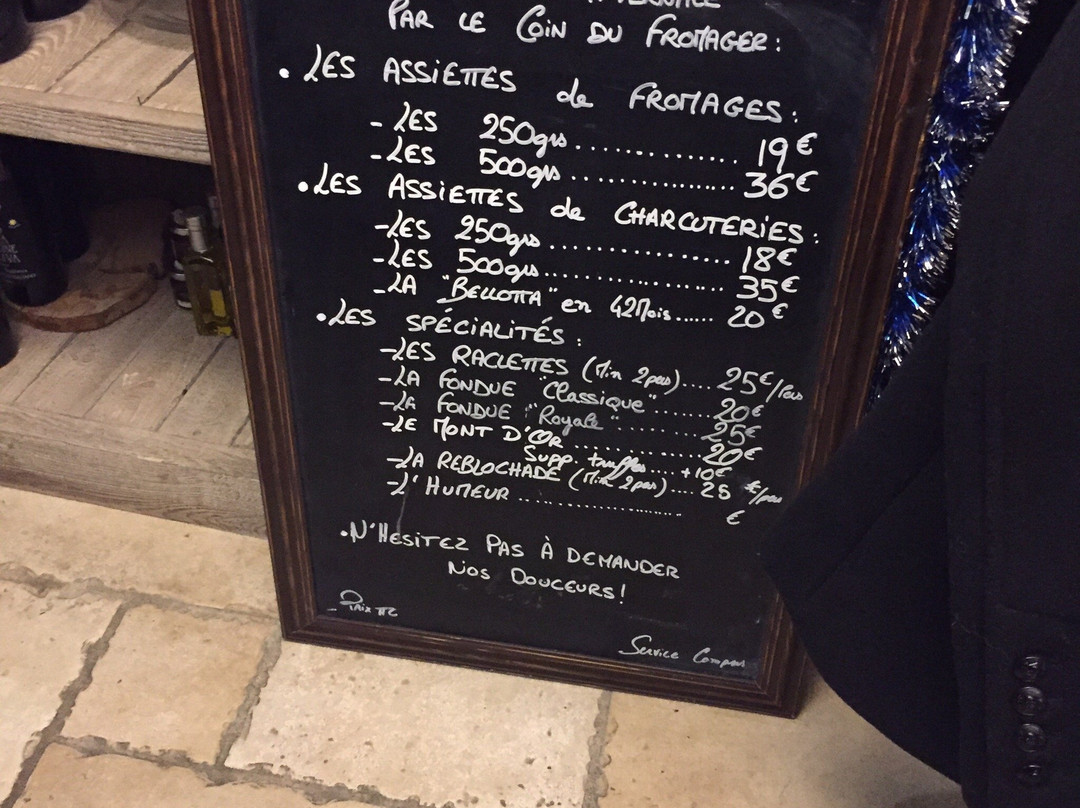 PAR LE COIN DU FROMAGER :
• LES ASSIETTES de FROMAGES :
- LES 250grs .............. 19€
- LES 500grs ................ 36€
• LES ASSIETTES de CHARCUTERIES :
- LES 250grs ................ 18€
- LES 500grs ................ 35€
- LA "BELLOTTA" en 42Mois ...... 20€
• LES SPÉCIALITÉS :
- LES RACLETTES (Min 2pers) .... 25€/Pers
- LA FONDUE "Classique" ....... 20€
- LA FONDUE "Royale" ......... 25€
- LE MONT D'OR ............... 20€
Supp. truffes .... +10€
- LA REBLOCHADE (Min 2pers) .... 25 €/pers
- L'HUMEUR ..................... €
• N'HÉSITEZ PAS À DEMANDER
NOS DOUCEURS !
- Prix TTC
Service Compris